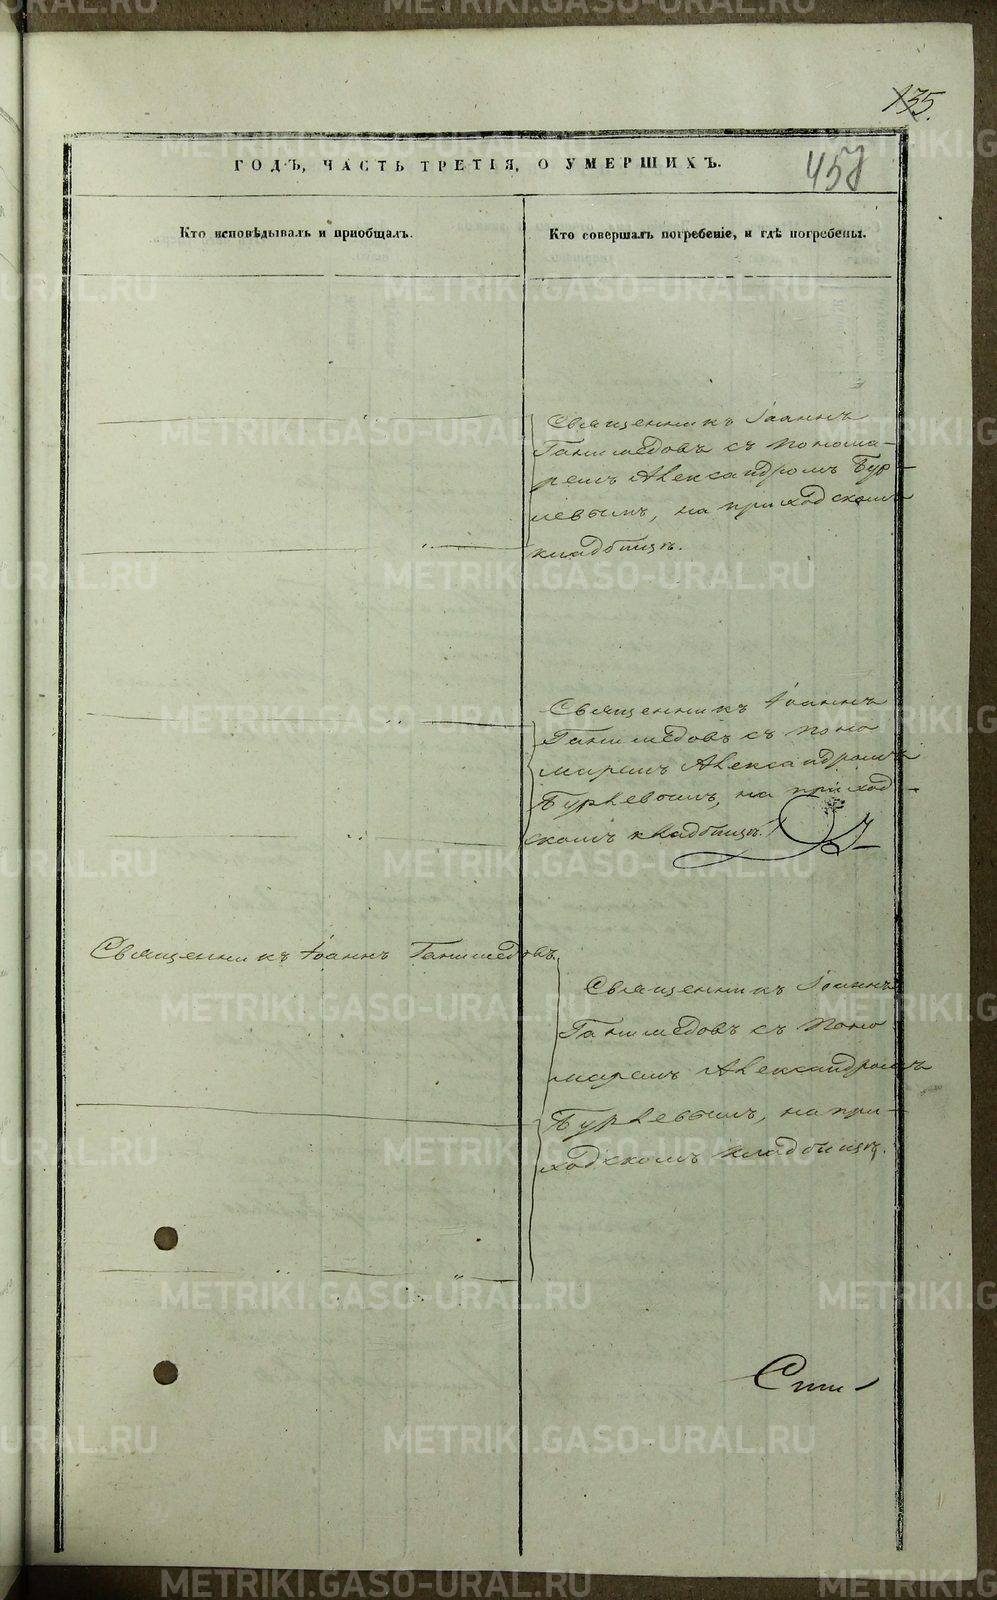 135.
ГОДЪ, ЧАСТЬ ТРЕТІЯ, О УМЕРШИХЪ.
457
Кто исповѣдывалъ и приобщалъ.
Кто совершалъ погребеніе, и гдѣ погребены.
Священникъ Іоаннъ
Ганимедовъ съ понома-
ремъ Александромъ Бур-
левымъ, на приходскомъ
кладбищѣ.
Священникъ Іоаннъ
Ганимедовъ съ поно
маремъ Александромъ
Бурлевымъ, на приход-
скомъ кладбищѣ.
Священникъ Іоаннъ Ганимедовъ.
Священникъ Іоаннъ
Ганимедовъ съ поно
маремъ Александромъ
Бурлевымъ, на при-
ходскомъ кладбищѣ.
METRIKI.GASO-URAL.RU